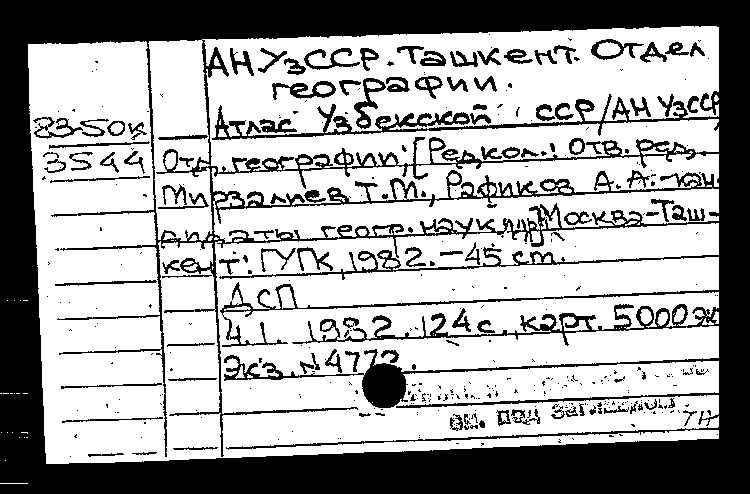 АН УзССР. Ташкент. Отдел
географии.
83-50к
Атлас Узбекской ССР/АН УзССР,
3544
Отд. географии; [Редкол.: Отв. ред.
Мирзалиев Т.М., Рафиков А.А.-кан-
дидаты геогр. наук и др.] Москва-Таш-
кент: ГУГК, 1982.-45 cm.
ДСП.
Ч.1. 1982. 124 с., карт. 5000 эк
Экз. №4772.
оп. под заглавием
ТН